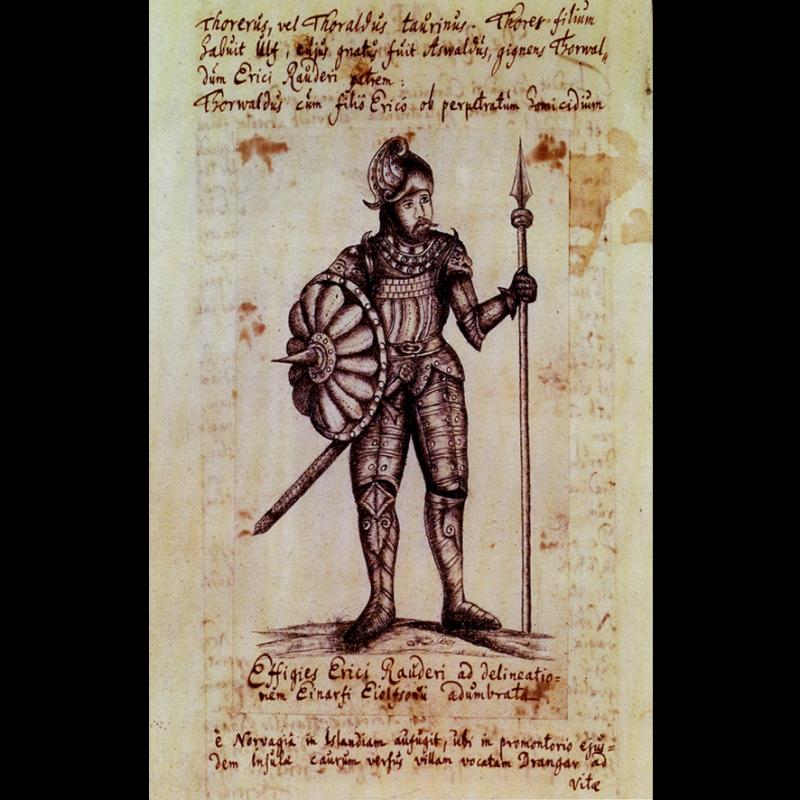 Thorerus, vel Thoraldus taurinus. Thores-filium
habuit Ulf, cujus gnatus fuit Aswaldus, gignens Thorwal=
dum Erici Rauderi patrem:
Thorwaldus cum filio Erico ob perpetratum homicidium
Effigies Erici Rauderi ad delineatio=
nem Einarsi Eiolfsonii adumbrata
è Norvagia in Islandiam aufugit, ubi in promontorio ejus=
dem Insulæ caurum versus villam vocatam Drangar ad
vitæ